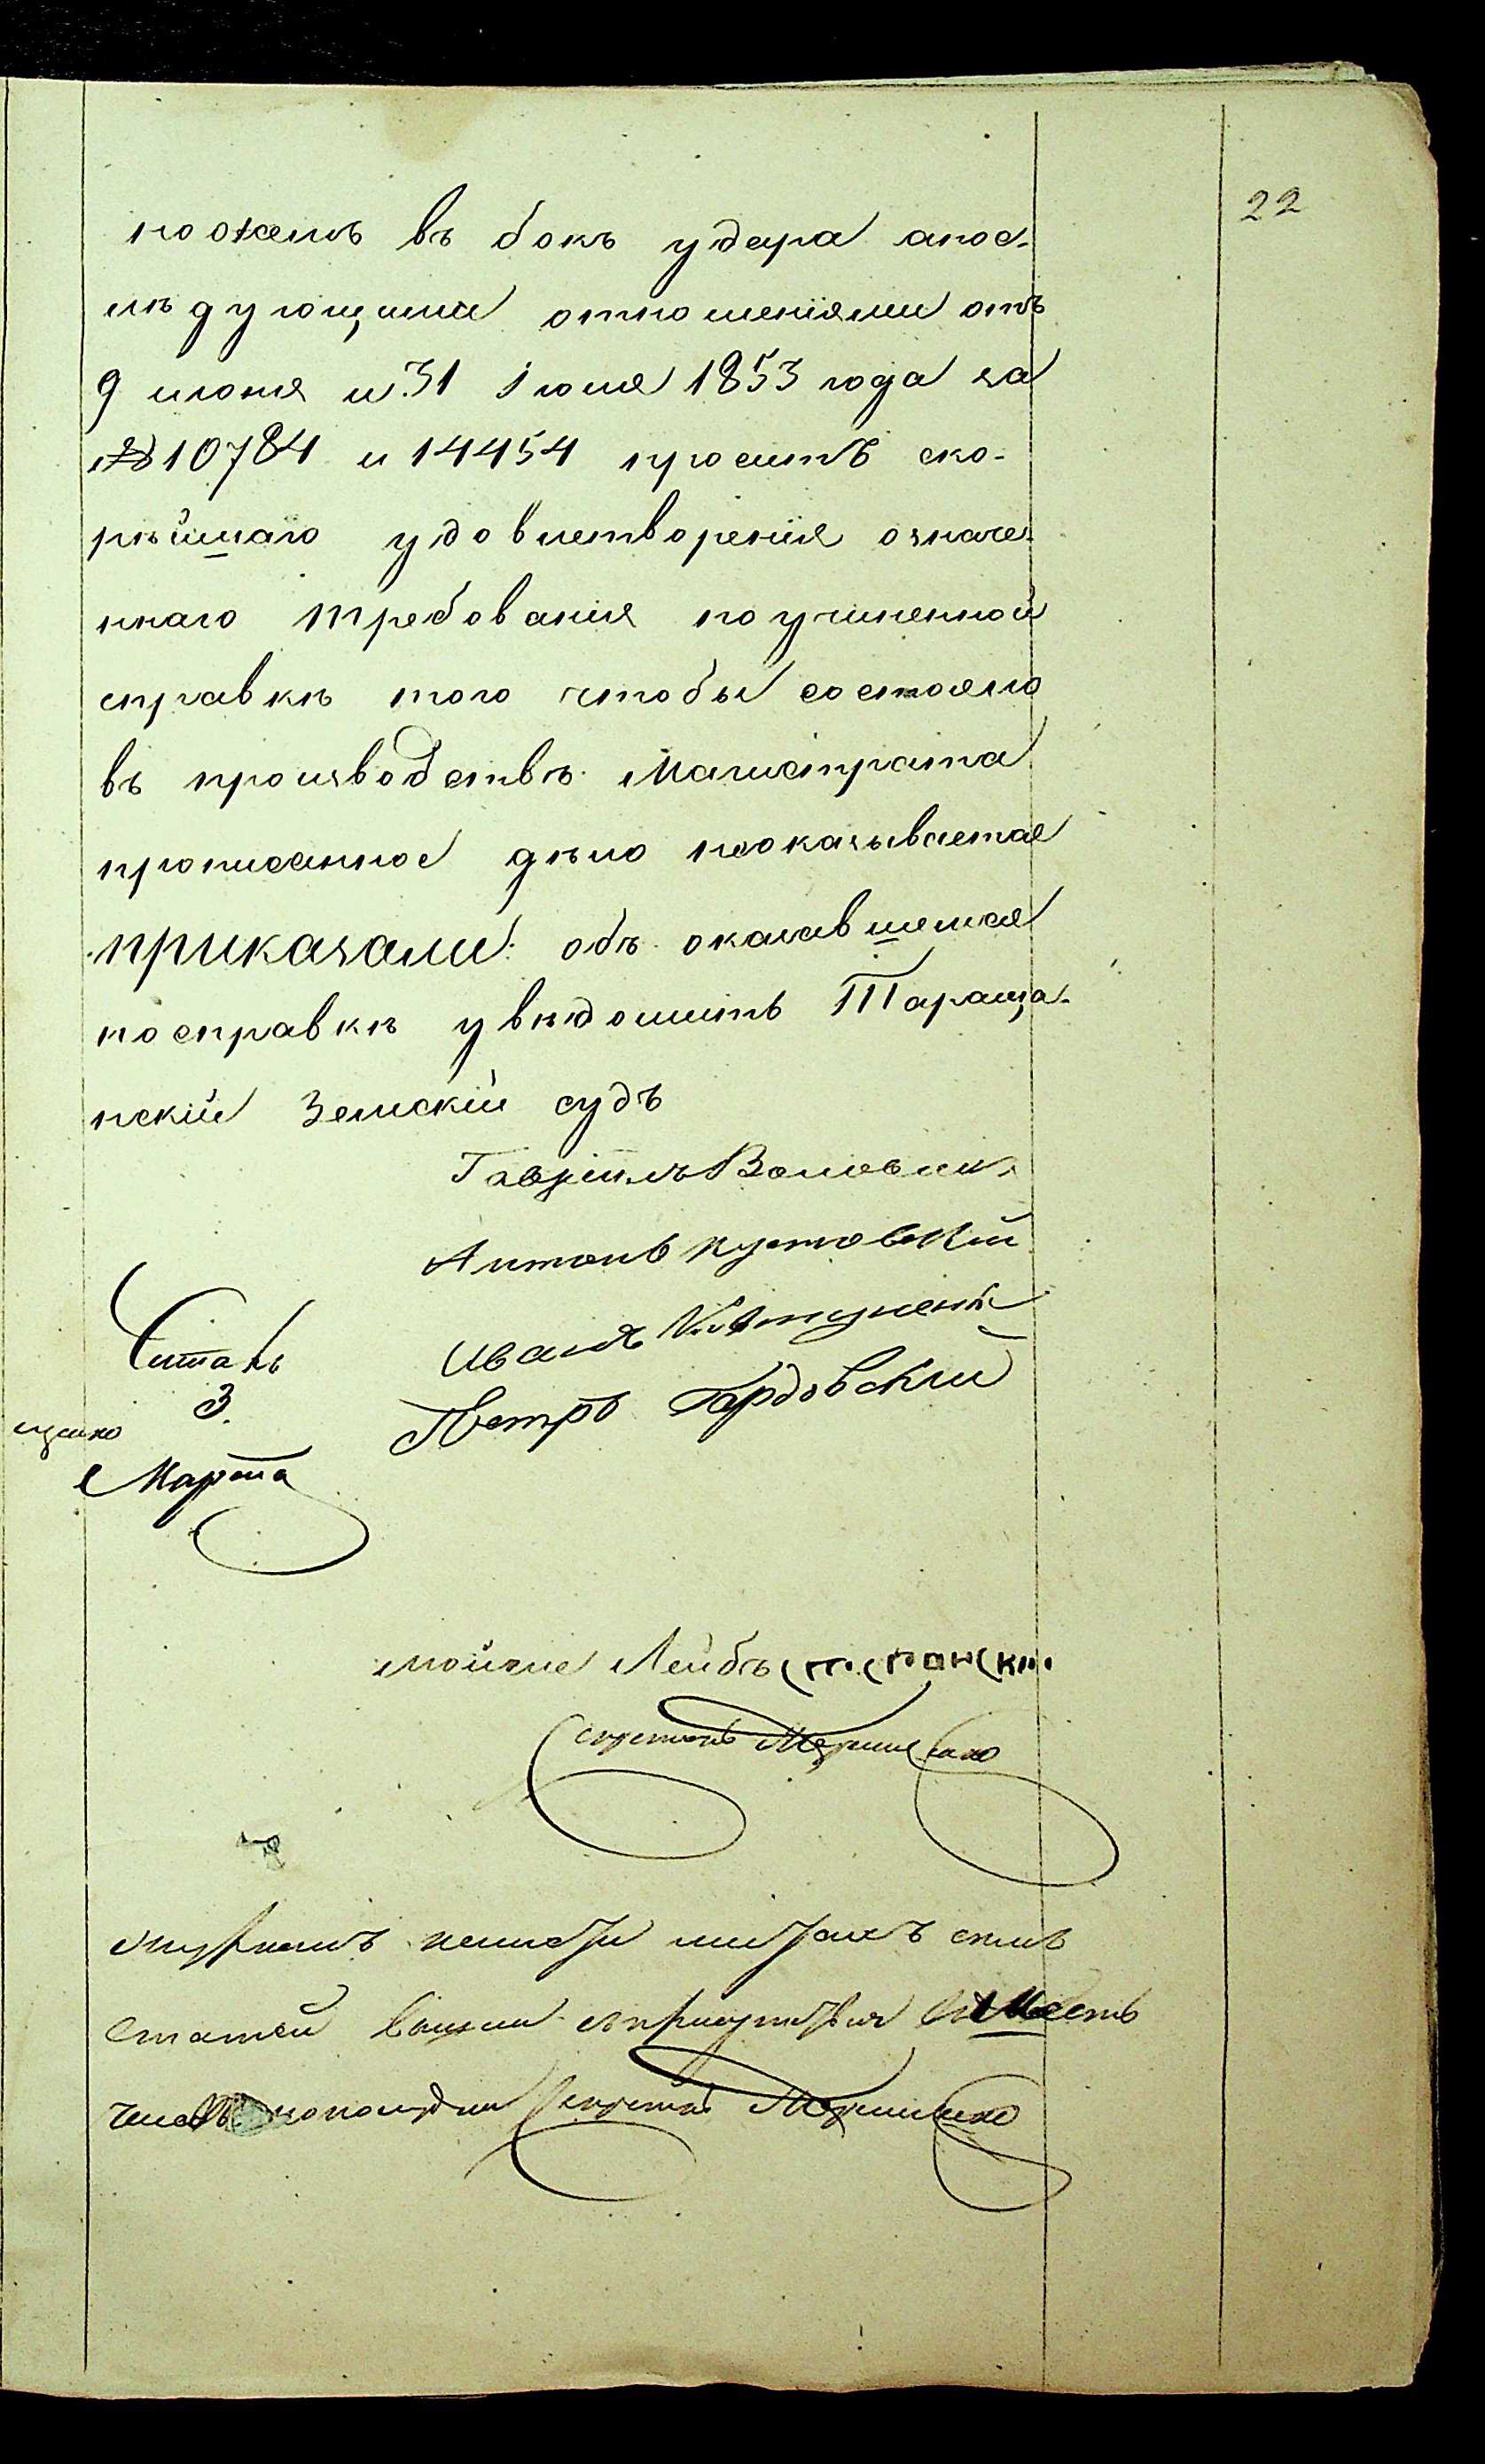 22
ножемъ въ бокъ удара апос-
лѣдующими отношеніями отъ
9 июня и 31 Іюля 1853 года за
№ 10784 и 14454 проситъ ско-
рѣйшаго удовлетворенія означе-
ннаго требованія поучиненной
справкѣ того чтобы состояло
въ производствѣ Магистрата
прописанное дѣло неоказывается
приказали: объ оказавшемся
посправкѣ увѣдомить Тараща-
нскій Земскій судъ
Гавріилъ
Антонъ
Иванъ
Петръ Гордовскій
Читалъ
3
Марта
Мойше Лейбъ
Секретарь
статей
Секретарь